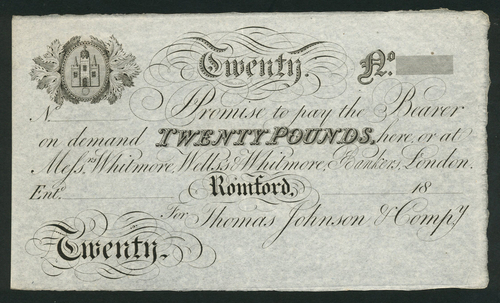 Twenty. No.
N Promise to pay the Bearer
on demand TWENTY POUNDS, here, or at
Messrs. Whitmore, Wells & Whitmore, Bankers, London.
Entd. Romford, 18
For Thomas Johnson & Compy.
Twenty.